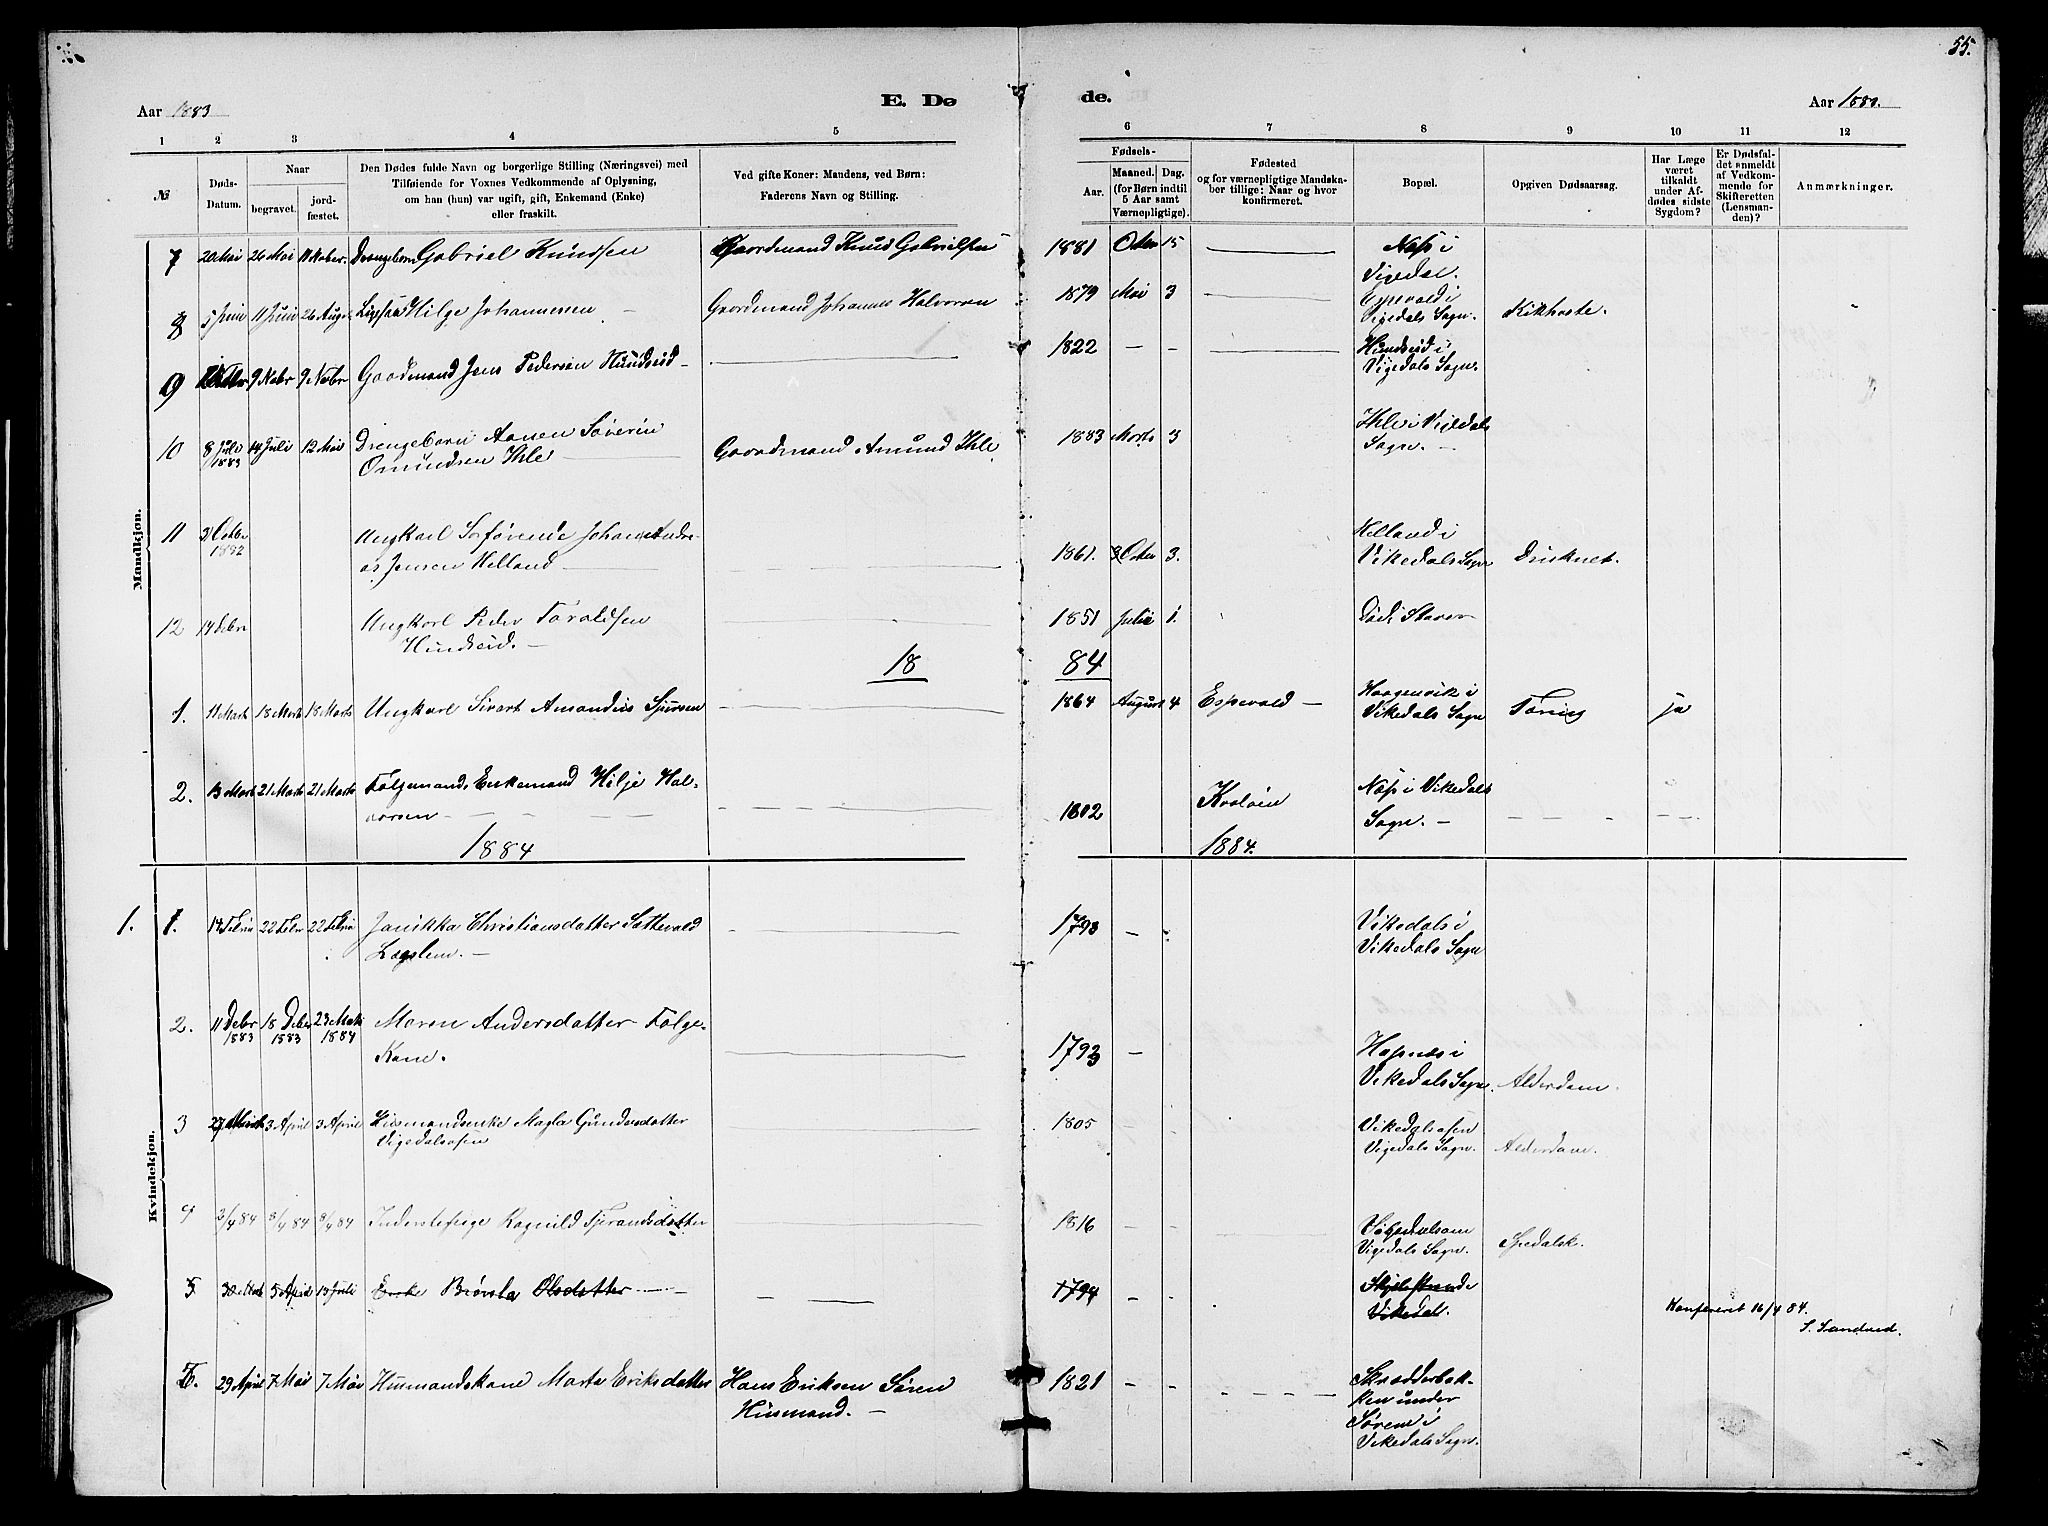 55.
Aar 1883
E. Dø
de.
Aar 1883.
1 2 3 4 5 6 7 8 9 10 11 12
№
Døds-
Datum.
Naar
begravet.
jord-
fæstet.
Den Dødes fulde Navn og borgerlige Stilling (Næringsvei) med
Tilføiende for Voxnes Vedkommende af Oplysning,
om han (hun) var ugift, gift, Enkemand (Enke)
eller fraskilt.
Ved gifte Koner: Mandens, ved Børn:
Faderens Navn og Stilling.
Fødsels-
Aar.
Maaned.
(for Børn indtil
5 Aar samt
Værnepligtige).
Dag.
Fødested
og for værnepligtige Mandska-
ber tillige: Naar og hvor
konfirmeret.
Bopæl.
Opgiven Dødsaarsag.
Har Læge
været
tilkaldt
under Af-
dødes sidste
Sygdom?
Er Dødsfal-
det anmeldt
af Vedkom-
mende for
Skifteretten
(Lensman-
den)?
Anmærkninger.
Mandkjøn.
7 20 Mai 26 Mai 11 Nober. Drengebarn Gabriel Knudsen Gaardmand Knud Gabrielsen 1881 Octer 15 Næs i
Vigedal.
8 5 Juni 11 Juni 26 Aug. Ligesaa Hilge Johannesen Gaardmand Johannes Halvorsen 1879 Mai 3 Espevold i
Vigedals Sogn. Kikhoste.
9 9 Nobr 9 Nobr Gaardmand Jens Pedersen Hundseid 1822 Hundseid i
Vigedals Sogn.
10 8 Juli
1883 14 Juli 12 Mai Drengebarn Aanen Søverin
Omundsen Ihle Gaardmand Amund Ihle 1883 Marts 3 Ihle i Vigedals
Sogn.
11 Octbr
1882 Ungkarl Søfarende Johan Andre-
as Jensen Helland 1861. Octer 3. Helland i
Vikedals Sogn Druknet.
12 14 Febr Ungkarl Peder Taraldsen
Hundseid. 1851 Julii 1.
18 84
1. 11 Mart 18 Marts 18 Marts Ungkarl Sivert Amandus Sjursen 1864 August 4 Espevold Haagenvik i
Vikedals Sogn Tæring ja
2. 13 Mart 21 Marts 21 Marts Følgemand, Enkemand Hilje Hal-
vorsen 1802 Kvaløen Næs i Vikedals
Sogn.
1884 1884.
Kvindekjøn.
1. 1. 14 Febru 22 Febr 22 Febru Janikka Christiansdatter Sattevold
Lægslem. 1793 Vikedals i
Vikedals Sogn
2. 11 Debr
1883 18 Deber
1883 23 Marts
1884 Maren Andersdatter Følge-
Kone. 1793 Hapnæs i
Vikedals Sogn. Alderdom.
3 27 Marts 3 April 3 April Husmandsenke Magla Gundersdatter
Vigedalsosen 1805 Vikedalsosen
Vigedals Sogn. Alderdom.
4 3/4 84 8/4 84 8/4 84 Inderstepige Ragnild Tjerandsdatter 1816 Vigedalsosen
Vigedals Sogn. Spedalsk.
5 30 Mart 5 April 13 Juli Enke Brønla Olsdatter 1794 Skjelstrand i
Vikedal.
Konfereret 16/4 84.
S. Sandved.
29 April 7 Mai 7 Mai Husmandskone Marta Eriksdatter Hans Eriksen Søren
Husmand. 1821 Skrædderbak-
ken under
Sørens i
Vikedals Sogn.